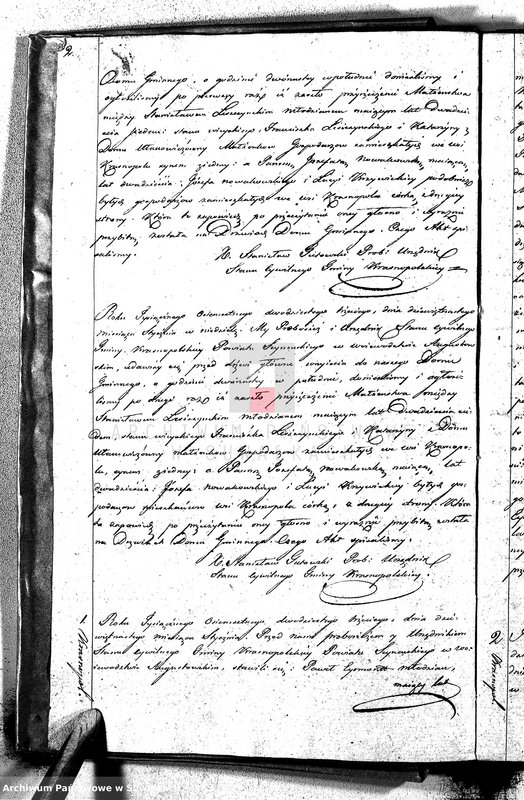 2.
Domu Gminnego, o godzinie dwónastej w południe donieśliśmy i
ogłosiliśmy po pierwszy raz iż zaszło przyrzeczenie Małżeństwa
między Stanisławem młodzianem maiącym lat Dwadzieścia
siedem stanu wieyskiego, Franciszka i Katarzyny z
Domu Małżonków Gospodarzow zamieszkałych we wsi
Krasnopolu synem z iedney: a Panną Jozefatą Nowakowską maiącą
lat dwadzieścia: Józefa Nowakowskiego i Lucyi Krzywickiey
byłych gospodarzow zamieszkałych we wsi Krasnopolu córką, z drugiey
strony. Która to zapowiedź po przeczytaniu oney głośno i wyraźnie
przybitą została na Drzwiach Domu Gminnego. Czego Akt spi-
saliśmy.
X. Stanisław Prob: Urzędnik
Stanu Cywilnego Gminy Krasnopolskiey
Roku Tysiącznego Osiemsetnego dwudziestego trzeciego, dnia dziewiętnastego
miesiąca Stycznia w niedzielę: My Proboszcz i Urzędnik Stanu Cywilnego
Gminy Krasnopolskiey Powiatu Seyneńskiego w woiewodztwie Augustow-
skim, udawszy się przed drzwi główne weyścia do naszego Domu
Gminnego, o godzinie dwónastey w południe, donieśliśmy i ogłosi-
liśmy po drugi raz iż zaszło przyrzeczenie Małżeństwa pomiędzy
Stanisławem młodzianem maiącym lat Dwadzieścia sie-
dem stanu wieyskiego Franciszka Katarzyny z Domu
małżonków Gospodarzow zamieszkałych we wsi Krasnopo-
lu, synem z iedney: a Panną Jozefatą Nowakowską maiącą lat
dwadzieścia: Józefa Nowakowskiego i Lucyi Krzywickiey byłych go-
spodarzow mieszkańcow wsi Krasnopola córką, z drugiey strony. Która
to zapowiedź po przeczytaniu oney głośno i wyraźnie przybitą została
na Drzwiach Domu Gminnego. Czego Akt spisaliśmy.
X. Stanisław Prob: Urzędnik
Stanu Cywilnego Gminy Krasnopolskiey.
Roku Tysiącznego Osiemsetnego dwudziestego trzeciego, dnia dzie-
więtnastego miesiąca Stycznia. Przed nami proboszczem y Urzędnikiem
Stanu Cywilnego Gminy Krasnopolskiey Powiatu Seyneńskiego w wo-
iewodztwie Augustowskim, stawili się: Paweł młodzian,
maiący lat
Archiwum Państwowe w Suwałkach